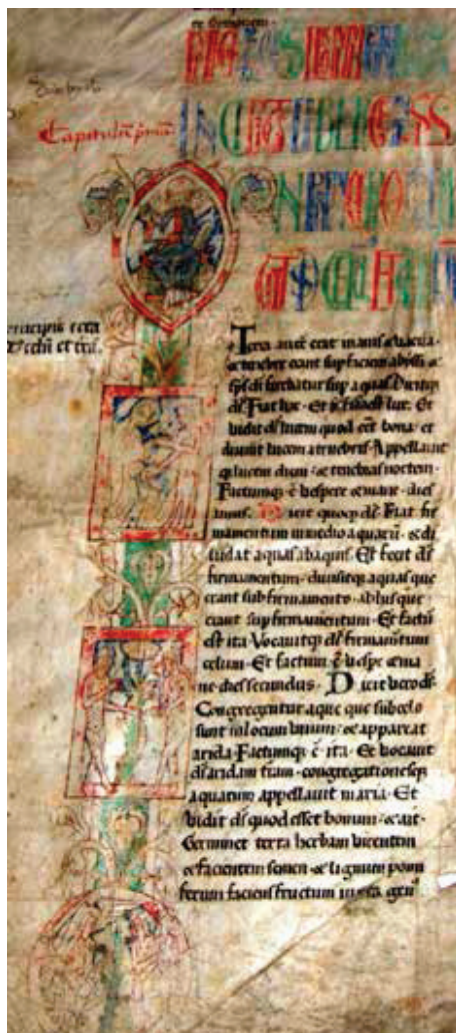 et
Capitulū primū
INCIPIT LIBER GENESIS
celū et trā.
Terra autē erat inanis & vacua ·
& tenebre erant sup faciem abyssi &
sps di ferebatur sup aquas. Dixitq
ds̄. Fiat lux · Et facta est lux. Et
vidit ds̄ lucem quod eēt bona · et
divisit lucem a tenebris. Appellavit
q lucem diem · & tenebras noctem ·
Factumq ē vespere & mane · dies
unus. Dixit quoq ds̄. Fiat fir
mamentum in medio aquarū · & di
vidat aquas ab aquis. Et fecit ds̄
firmamentum · divisitq aquas que
erant sub firmamento · ab his que
erant sup firmamentum · Et factū
est ita. Vocavitq ds̄ firmamentum
celum · Et factum ē vespe & ma
ne dies secundus · Dixit vero ds̄.
Congregentur aque que sub celo
sunt in locum unum · & appareat
arida. Factumq ē ita · Et vocavit
ds̄ aridam trām · congregationesq
aquarum appellavit maria · Et
vidit ds̄ quod esset bonum · & ait ·
Germinet terra herbam virentem
& facientem semen · & lignum pomi
ferum faciens fructum iuxta genˀ